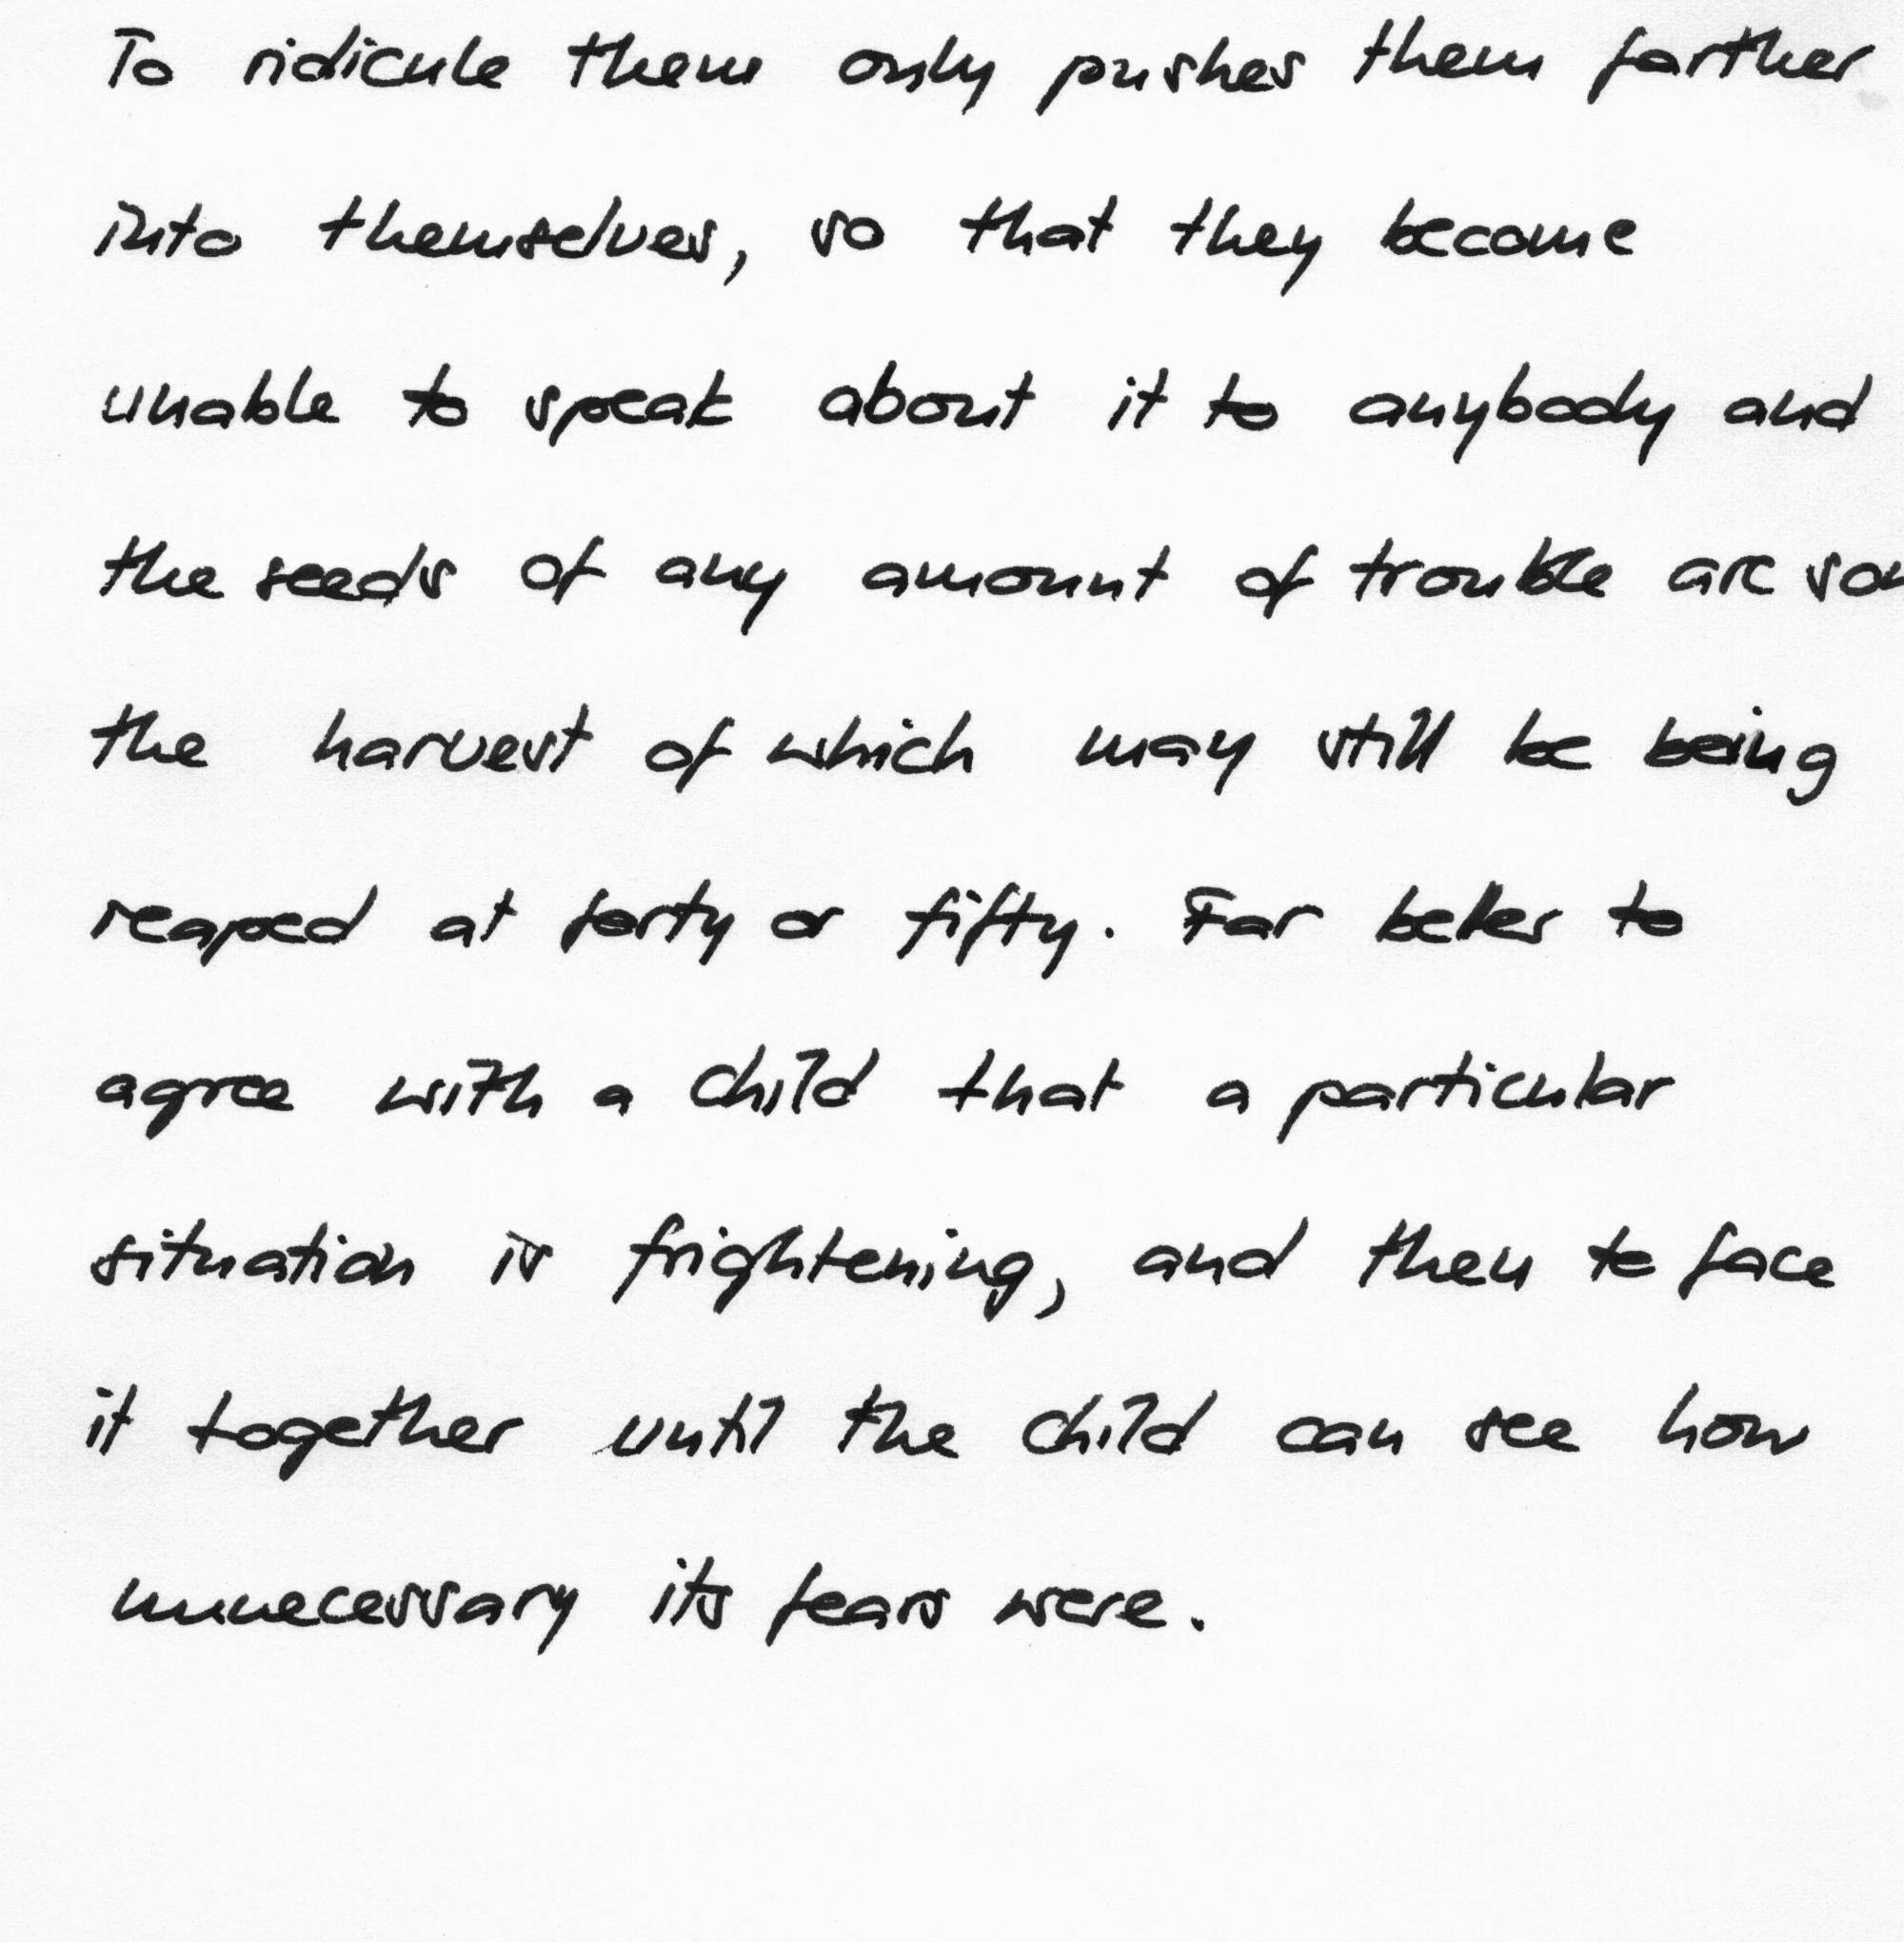 To ridicule them only pushes them farther
into themselves, so that they become
unable to speak about it to anybody and
the seeds of any amount of trouble are
the harvest of which may still be being
reaped at forty or fifty. Far better to
agree with a child that a particular
situation is frightening, and then to face
it together until the child can see how
unnecessary its fears were.